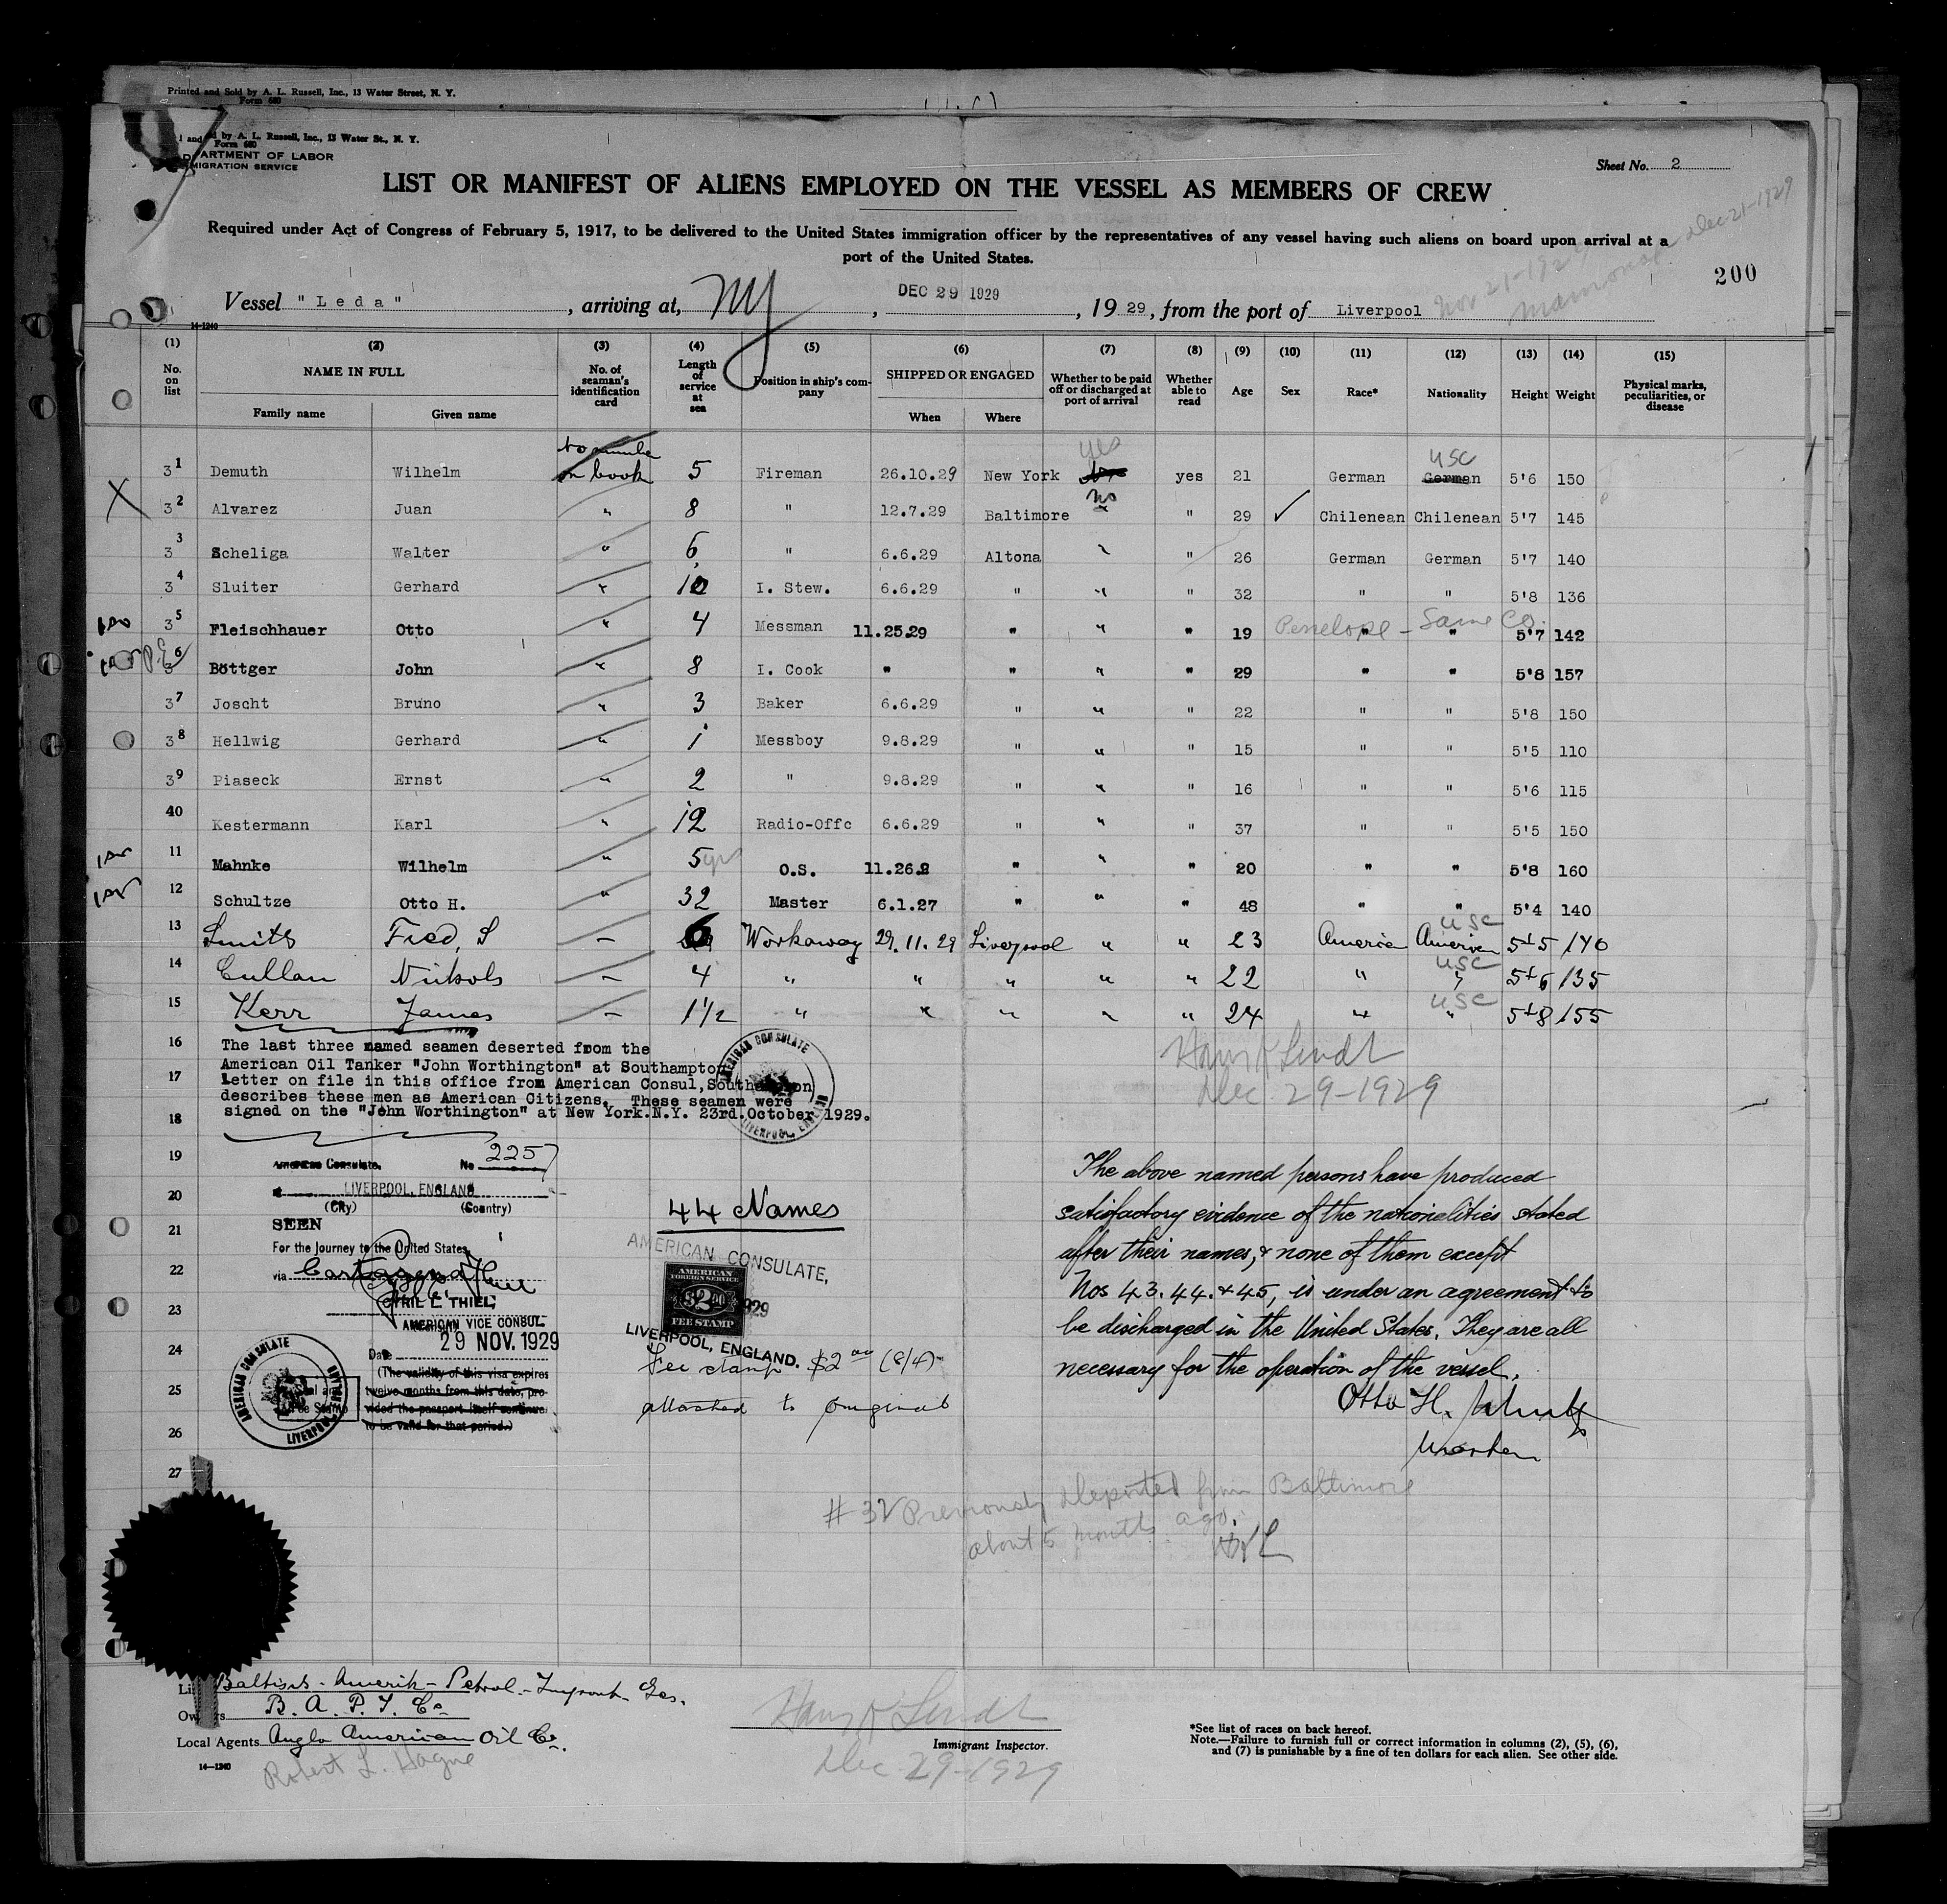 Printed and Sold by A. L. Russell, Inc., 13 Water Street, N. Y.
Form 680
d by A. L. Russell, Inc., 13 Water St., N. Y.
Form 680
DEPARTMENT OF LABOR
IMMIGRATION SERVICE
Sheet No. 2
LIST OR MANIFEST OF ALIENS EMPLOYED ON THE VESSEL AS MEMBERS OF CREW
Required under Act of Congress of February 5, 1917, to be delivered to the United States immigration officer by the representatives of any vessel having such aliens on board upon arrival at a
port of the United States.
Nov 21-1929 Dec 21-1929
200
Vessel "Leda", arriving at, NY, DEC 29 1929, 1929, from the port of Liverpool
14-1240
(1) (2) (3) (4) (5) (6) (7) (8) (9) (10) (11) (12) (13) (14) (15)
No. on list
NAME IN FULL
Family name Given name
No. of seaman's identification card
Length of service at sea
Position in ship's company
SHIPPED OR ENGAGED
When Where
Whether to be paid off or discharged at port of arrival
Whether able to read
Age Sex Race* Nationality Height Weight
Physical marks, peculiarities, or disease
31 Demuth Wilhelm no number in book 5 Fireman 26.10.29 New York yes yes 21 German German USC 5'6 150
X 32 Alvarez Juan " 8 " 12.7.29 Baltimore no " 29 ✓ Chilenean Chilenean 5'7 145
33 Scheliga Walter " 6 " 6.6.29 Altona " " 26 German German 5'7 140
34 Sluiter Gerhard " 10 I. Stew. 6.6.29 " " " 32 " " 5'8 136
35 Fleischhauer Otto " 4 Messman 11.25.29 " " " 19 Penelope - Same Co. " " 5'7 142
36 Böttger John " 8 I. Cook " " " " 29 " " 5'8 157
37 Joscht Bruno " 3 Baker 6.6.29 " " " 22 " " 5'8 150
38 Hellwig Gerhard " 1 Messboy 9.8.29 " " " 15 " " 5'5 110
39 Piaseck Ernst " 2 " 9.8.29 " " " 16 " " 5'6 115
40 Kestermann Karl " 12 Radio-Offc 6.6.29 " " " 37 " " 5'5 150
11 Mahnke Wilhelm " 5 yr O.S. 11.26.2 " " " 20 " " 5'8 160
12 Schultze Otto H. " 32 Master 6.1.27 " " " 48 " " 5'4 140
13 Smith Fred, S - 6 Workaway 29.11.29 Liverpool " " 23 America American USC 5+5 140
14 Cullan Nichols - 4 " " " " " 22 " " USC 5+6 135
15 Kerr James - 1 1/2 " " " " " 24 " " USC 5+8 155
16
The last three named seamen deserted from the
American Oil Tanker "John Worthington" at Southampton
17
Letter on file in this office from American Consul, Southampton
describes these men as American Citizens. These seamen were
18
signed on the "John Worthington" at New York.N.Y. 23rd.October 1929.
AMERICAN CONSULATE LIVERPOOL, ENGLAND
Dec 29-1929
19
American Consulate. No 2257
20
LIVERPOOL, ENGLAND
(City) (Country)
21
SEEN
For the Journey to the United States,
22
via Cartagena
CYRIL L. THIEL,
23
AMERICAN VICE CONSUL
29 NOV. 1929
24
Date
(The validity of this visa expires
25
twelve months from this date, pro-
vided the passport itself continues
26
to be valid for that period.)
27
AMERICAN CONSULATE LIVERPOOL
44 Names
AMERICAN CONSULATE,
AMERICAN FOREIGN SERVICE
$2.00
FEE STAMP
LIVERPOOL, ENGLAND.
Fee stamp $2 00 (8/4)
attached to original
The above named persons have produced
satisfactory evidence of the nationalities stated
after their names, & none of them except
Nos 43. 44. & 45, is under an agreement to
be discharged in the United States. They are all
necessary for the operation of the vessel.
Otto H. Schultze
Master
# 32 Previously deported from Baltimore
about 5 months ago.
Baltisch-Amerik-Petrol-Import-Ges.
Owners B. A. P. I. Co
Local Agents Anglo American Oil Co.
14-1240
Robert L. Hague
Immigrant Inspector.
Dec 29-1929
*See list of races on back hereof.
Note.—Failure to furnish full or correct information in columns (2), (5), (6),
and (7) is punishable by a fine of ten dollars for each alien. See other side.